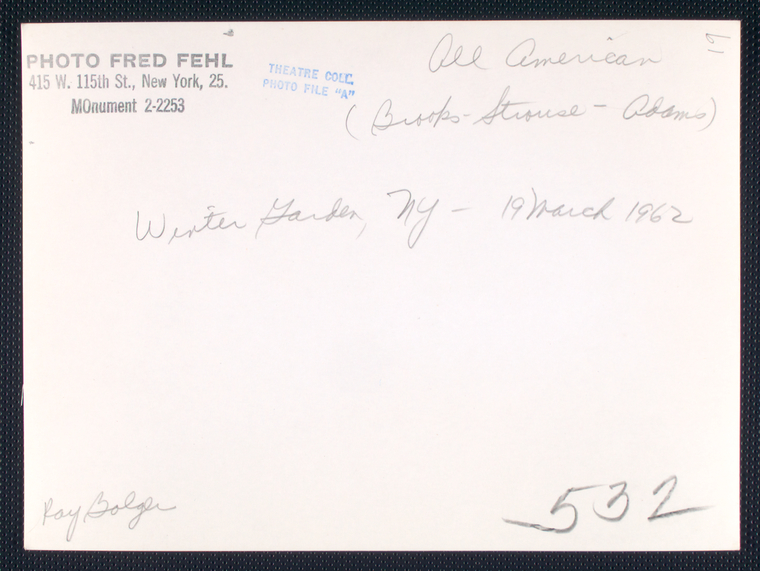 PHOTO FRED FEHL
415 W. 115th St., New York, 25.
MOnument 2-2253
THEATRE COLL.
PHOTO FILE "A"
All American
(Brooks-Strouse-Adams)
Winter Garden, NY - 19 March 1962
Ray Bolger
532